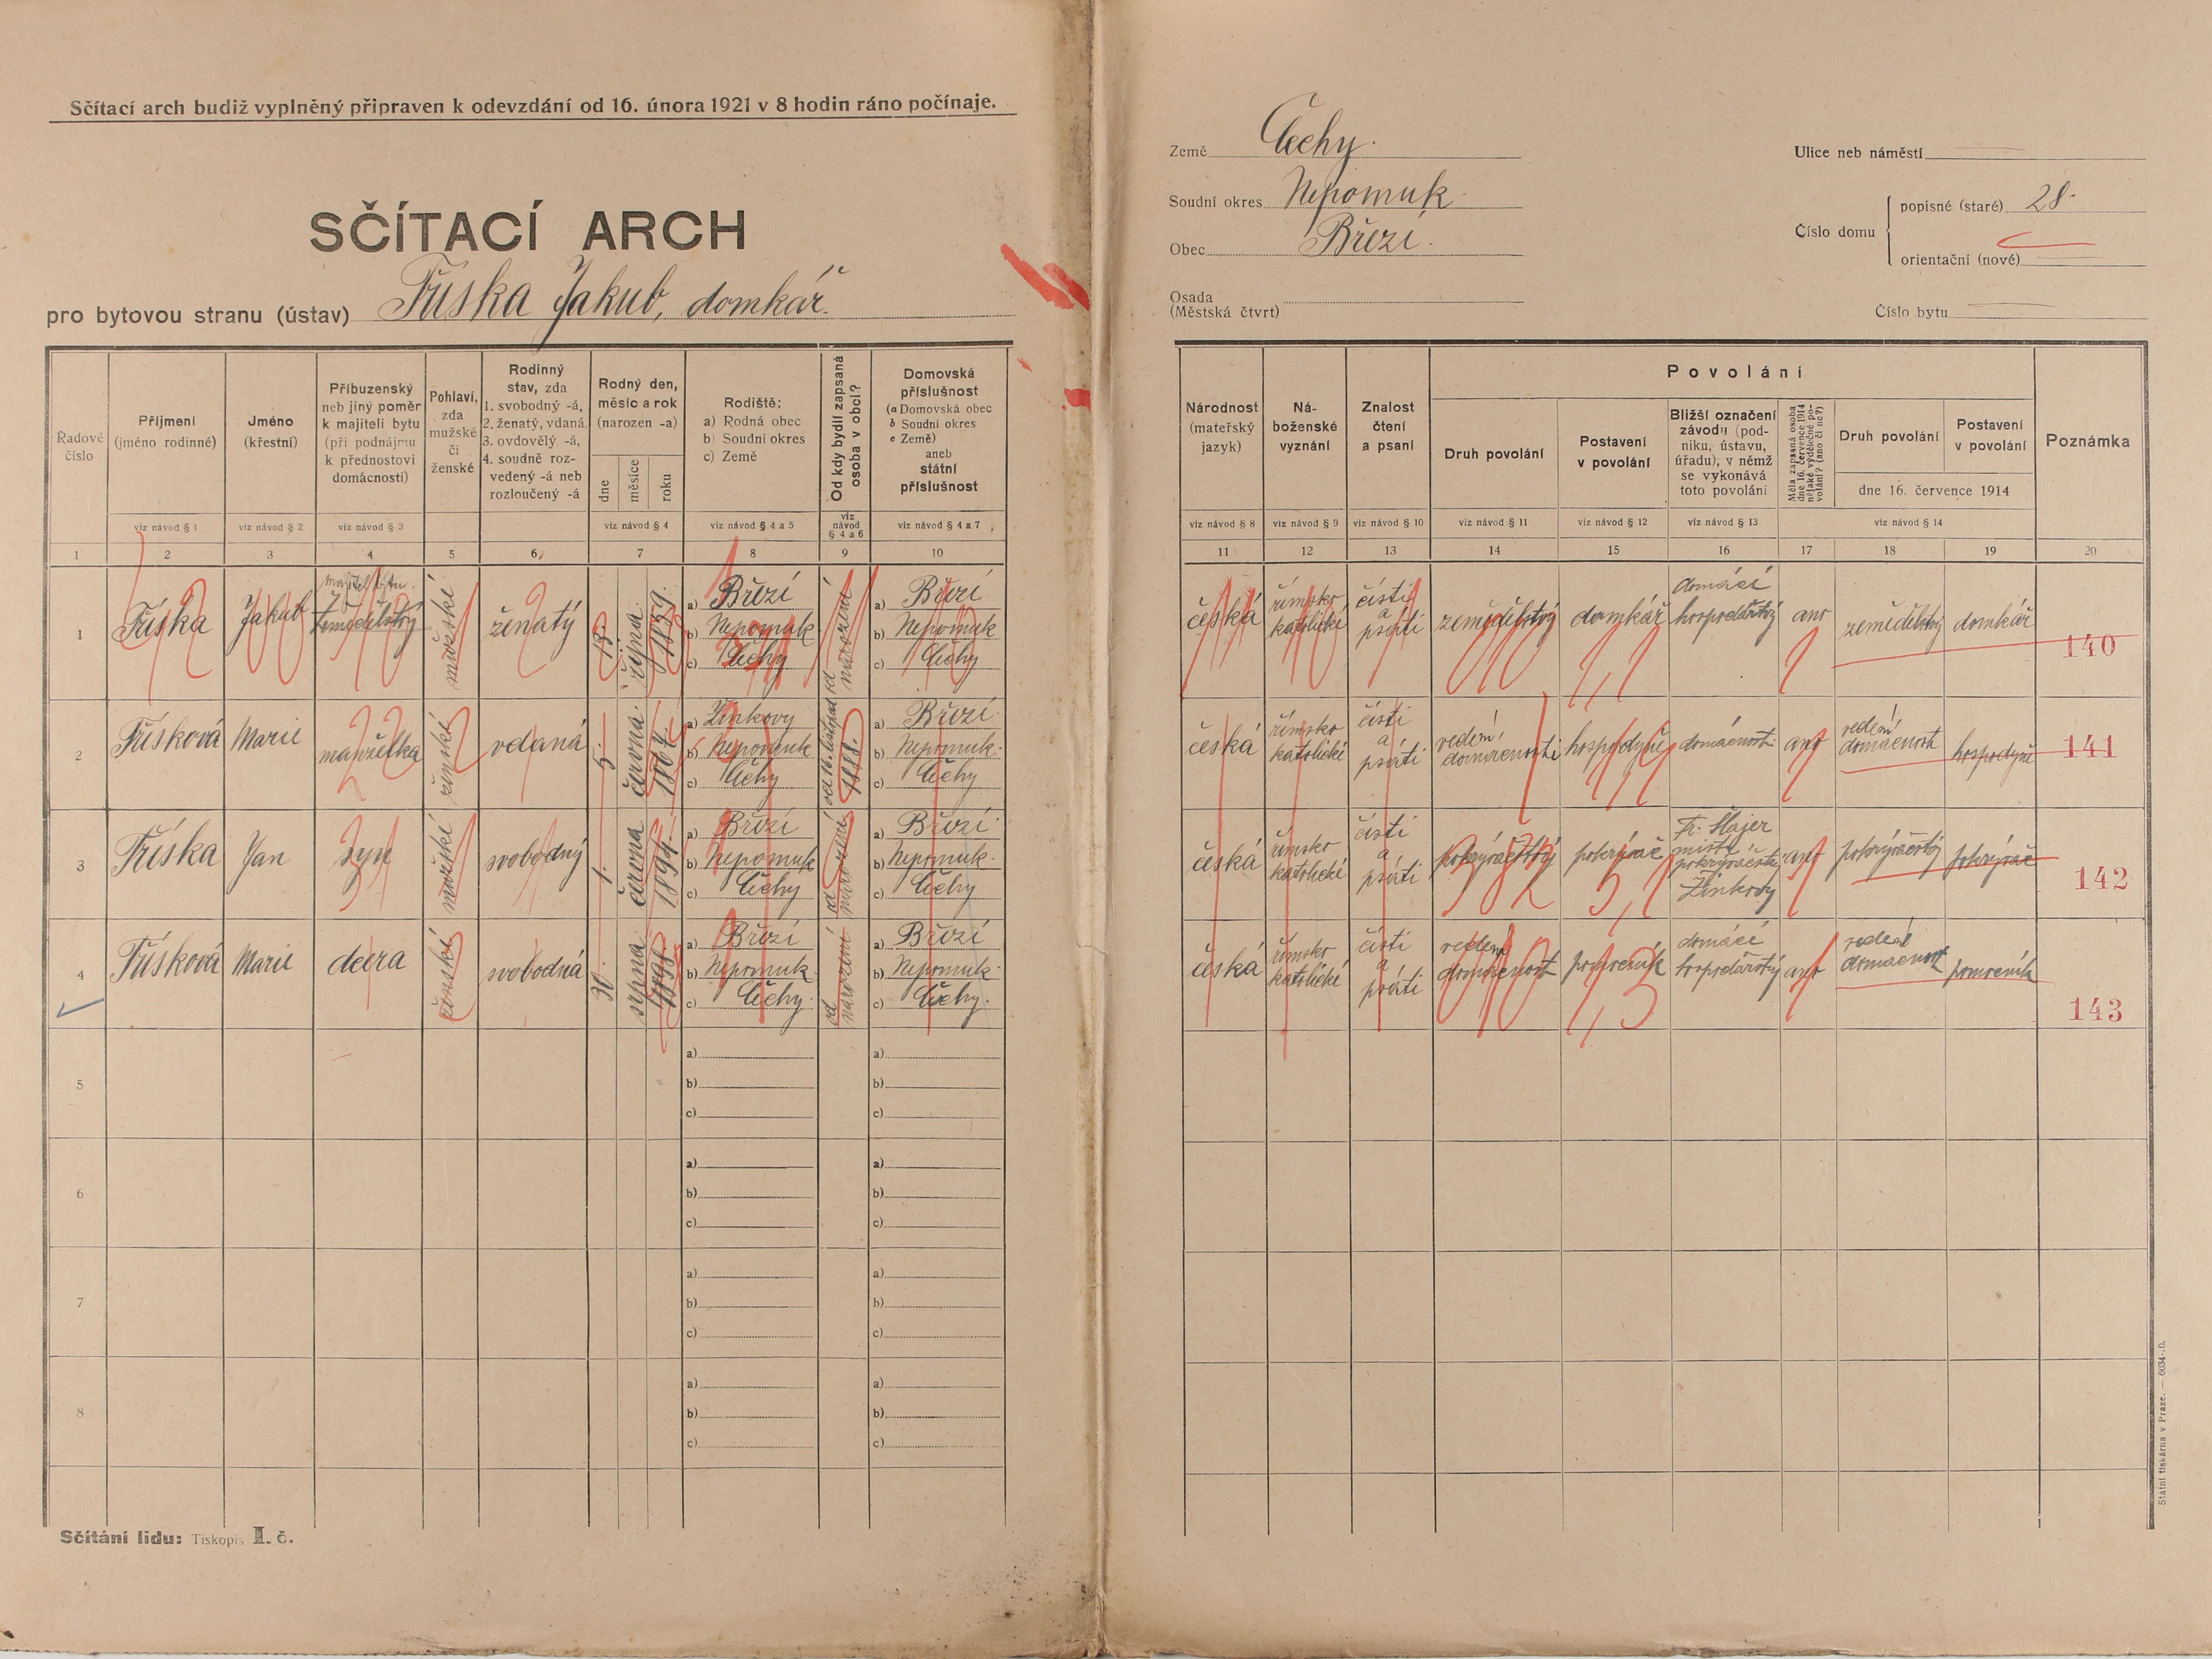 Sčítací arch budiž vyplněný připraven k odevzdání od 16. února 1921 v 8 hodin ráno počínaje.
SČÍTACÍ ARCH
pro bytovou stranu (ústav) Tříska Jakub, domkář.
Země Čechy.
Soudní okres Nepomuk
Obec Březí.
Osada
(Městská čtvrt)
Ulice neb náměstí
Číslo domu
popisné (staré) 28.
orientační (nové)
Číslo bytu
Řadové číslo
Příjmení (jméno rodinné)
Jméno (křestní)
Příbuzenský neb jiný poměr k majiteli bytu (při podnájmu k přednostovi domácnosti)
Pohlaví, zda mužské či ženské
Rodinný stav, zda 1. svobodný -á, 2. ženatý, vdaná, 3. ovdovělý -á, 4. soudně rozvedený -á neb rozloučený -á
Rodný den, měsíc a rok (narozen -a)
dne měsíce roku
Rodiště: a) Rodná obec b) Soudní okres c) Země
Od kdy bydlí zapsaná osoba v obci?
Domovská příslušnost (a Domovská obec b Soudní okres c Země) aneb státní příslušnost
Národnost (mateřský jazyk)
Náboženské vyznání
Znalost čtení a psaní
Povolání
Druh povolání
Postavení v povolání
Bližší označení závodu (podniku, ústavu, úřadu), v němž se vykonává toto povolání
Měla zapsaná osoba dne 16. července 1914 nějaké výdělečné povolání? (ano či ne?)
Druh povolání
Postavení v povolání
dne 16. července 1914
Poznámka
viz návod § 1 viz návod § 2 viz návod § 3 viz návod § 4 viz návod § 4 a 5 viz návod § 4 a 6 viz návod § 4 a 7
viz návod § 8 viz návod § 9 viz návod § 10 viz návod § 11 viz návod § 12 viz návod § 13 viz návod § 14
1 2 3 4 5 6 7 8 9 10 11 12 13 14 15 16 17 18 19 20
1 Tříska Jakub majitel bytu. zemědělství mužské ženatý 13. října 1859. a) Březí b) Nepomuk c) Čechy od narození a) Březí b) Nepomuk c) Čechy česká římsko katolické čísti a psáti zemědělství domkář domácí hospodářství ano zemědělství domkář 140
2 Třísková Marie manželka ženské vdaná 5. června a) Žinkovy b) Nepomuk c) Čechy od 16. listopad 1888. a) Březí b) Nepomuk. c) Čechy česká římsko katolické čísti a psáti vedení domácnosti hospodyně domácnost ano vedení domácnost hospodyně 141
3 Tříska Jan syn mužské svobodný 1. června a) Březí b) Nepomuk c) Čechy od narození a) Březí b) Nepomuk. c) Čechy česká římsko katolické čísti a psáti pokrývačství pokrývač Fr. Majer mistr pokrývačství Žinkovy ano pokrývačství pokrývač 142
4 Třísková Marie dcera ženské svobodná 30. srpna 1898. a) Březí b) Nepomuk. c) Čechy. od narození a) Březí b) Nepomuk. c) Čechy. česká římsko katolické čísti a psáti vedení domácnost pomocník domácí hospodářství ano vedení domácnost pomocník 143
5 a) b) c) a) b) c)
6 a) b) c) a) b) c)
7 a) b) c) a) b) c)
8 a) b) c) a) b) c)
Sčítání lidu: Tiskopis I. č.
Státní tiskárna v Praze. — 6034-.0.